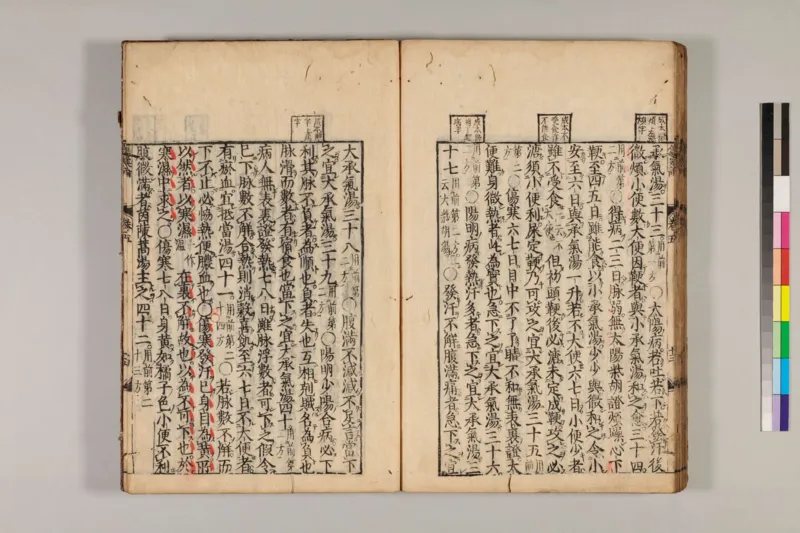 承氣湯三十三用前第一方○太陽病若吐若下若發汗後
微煩小便數大便因鞕者與小承氣湯和之愈三十四
用前第二方○得病二三日脉弱無太陽柴胡證煩躁心下
鞕至四五日雖能食以小承氣湯少少與微和之令小
安至六日與承氣湯一升若不大便六七日小便少者
雖不受食一云不大便但初頭鞕後必溏未定成鞕攻之必
溏須小便利屎定鞕乃可攻之宜大承氣湯三十五用前
第二方○傷寒六七日目中不了了睛不和無表裏證大
便難身微熱者此為實也急下之宜大承氣湯三十六
用前第二方○陽明病發熱汗多者急下之宜大承氣湯三
十七用前第二方一云大柴胡湯○發汗不解腹滿痛者急下之宜
大承氣湯三十八用前第二方○腹滿不減減不足言當下
之宜大承氣湯三十九用前第二方○陽明少陽合病必下
利其脉不負者為順也負者失也互相剋賊名為負也
脉滑而數者有宿食也當下之宜大承氣湯四十用前第二方
病人無表裏證發熱七八日雖脉浮數者可下之假令
已下脉數不解合熱則消穀喜飢至六七日不大便者
有瘀血宜抵當湯四十一用前第二十四方○若脉數不解而
下不止必協熱便膿血也○傷寒發汗已身目為黃所
以然者以寒濕一作溫在裏不解故也以為不可下也於
寒濕中求之○傷寒七八日身黃如橘子色小便不利
腹微滿者茵陳蒿湯主之四十二用前第二十三方